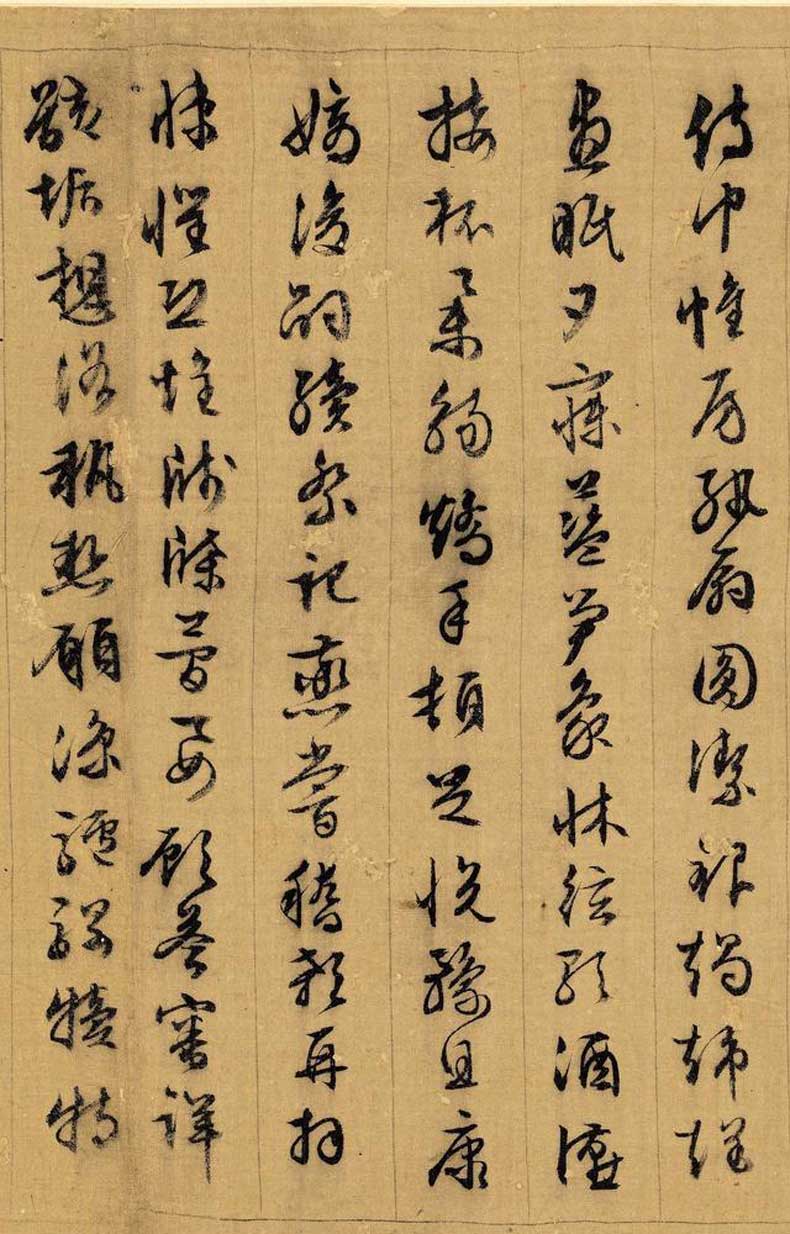 侍巾帷房紈扇圓潔銀燭煒煌
晝眠夕寐藍笋象牀絃歌酒讌
接杯舉觴矯手頓足悅豫且康
嫡後嗣續祭祀蒸嘗稽顙再拜
悚懼恐惶牋牒簡要顧答審詳
骸垢想浴執熱願涼驢騾犢特